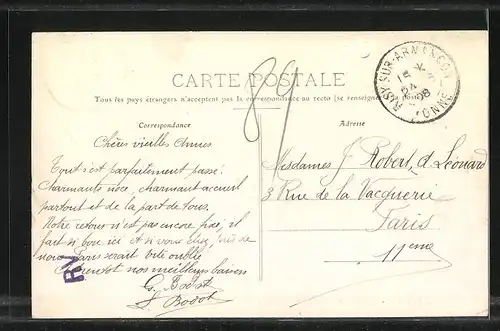 CARTE POSTALE
Tous les pays étrangers n'acceptent pas la correspondance au recto (se renseigner
Correspondance
Adresse
89
AISY-SUR-ARMANÇON
YONNE
24
08
Chères vieilles amies
Tout s'est parfaitement passé.
Charmante noce, charmant accueil
partout et de la part de tous.
Notre retour n'est pas encore fixé, il
fait si bon ici et si vous étiez près de
nous Paris serait vite oublié
nos meilleurs baisers
G. Bodot
Bodot
Mesdames J. Robert, d. Léonard
3 Rue de la Vacquerie
Paris
11eme
RV